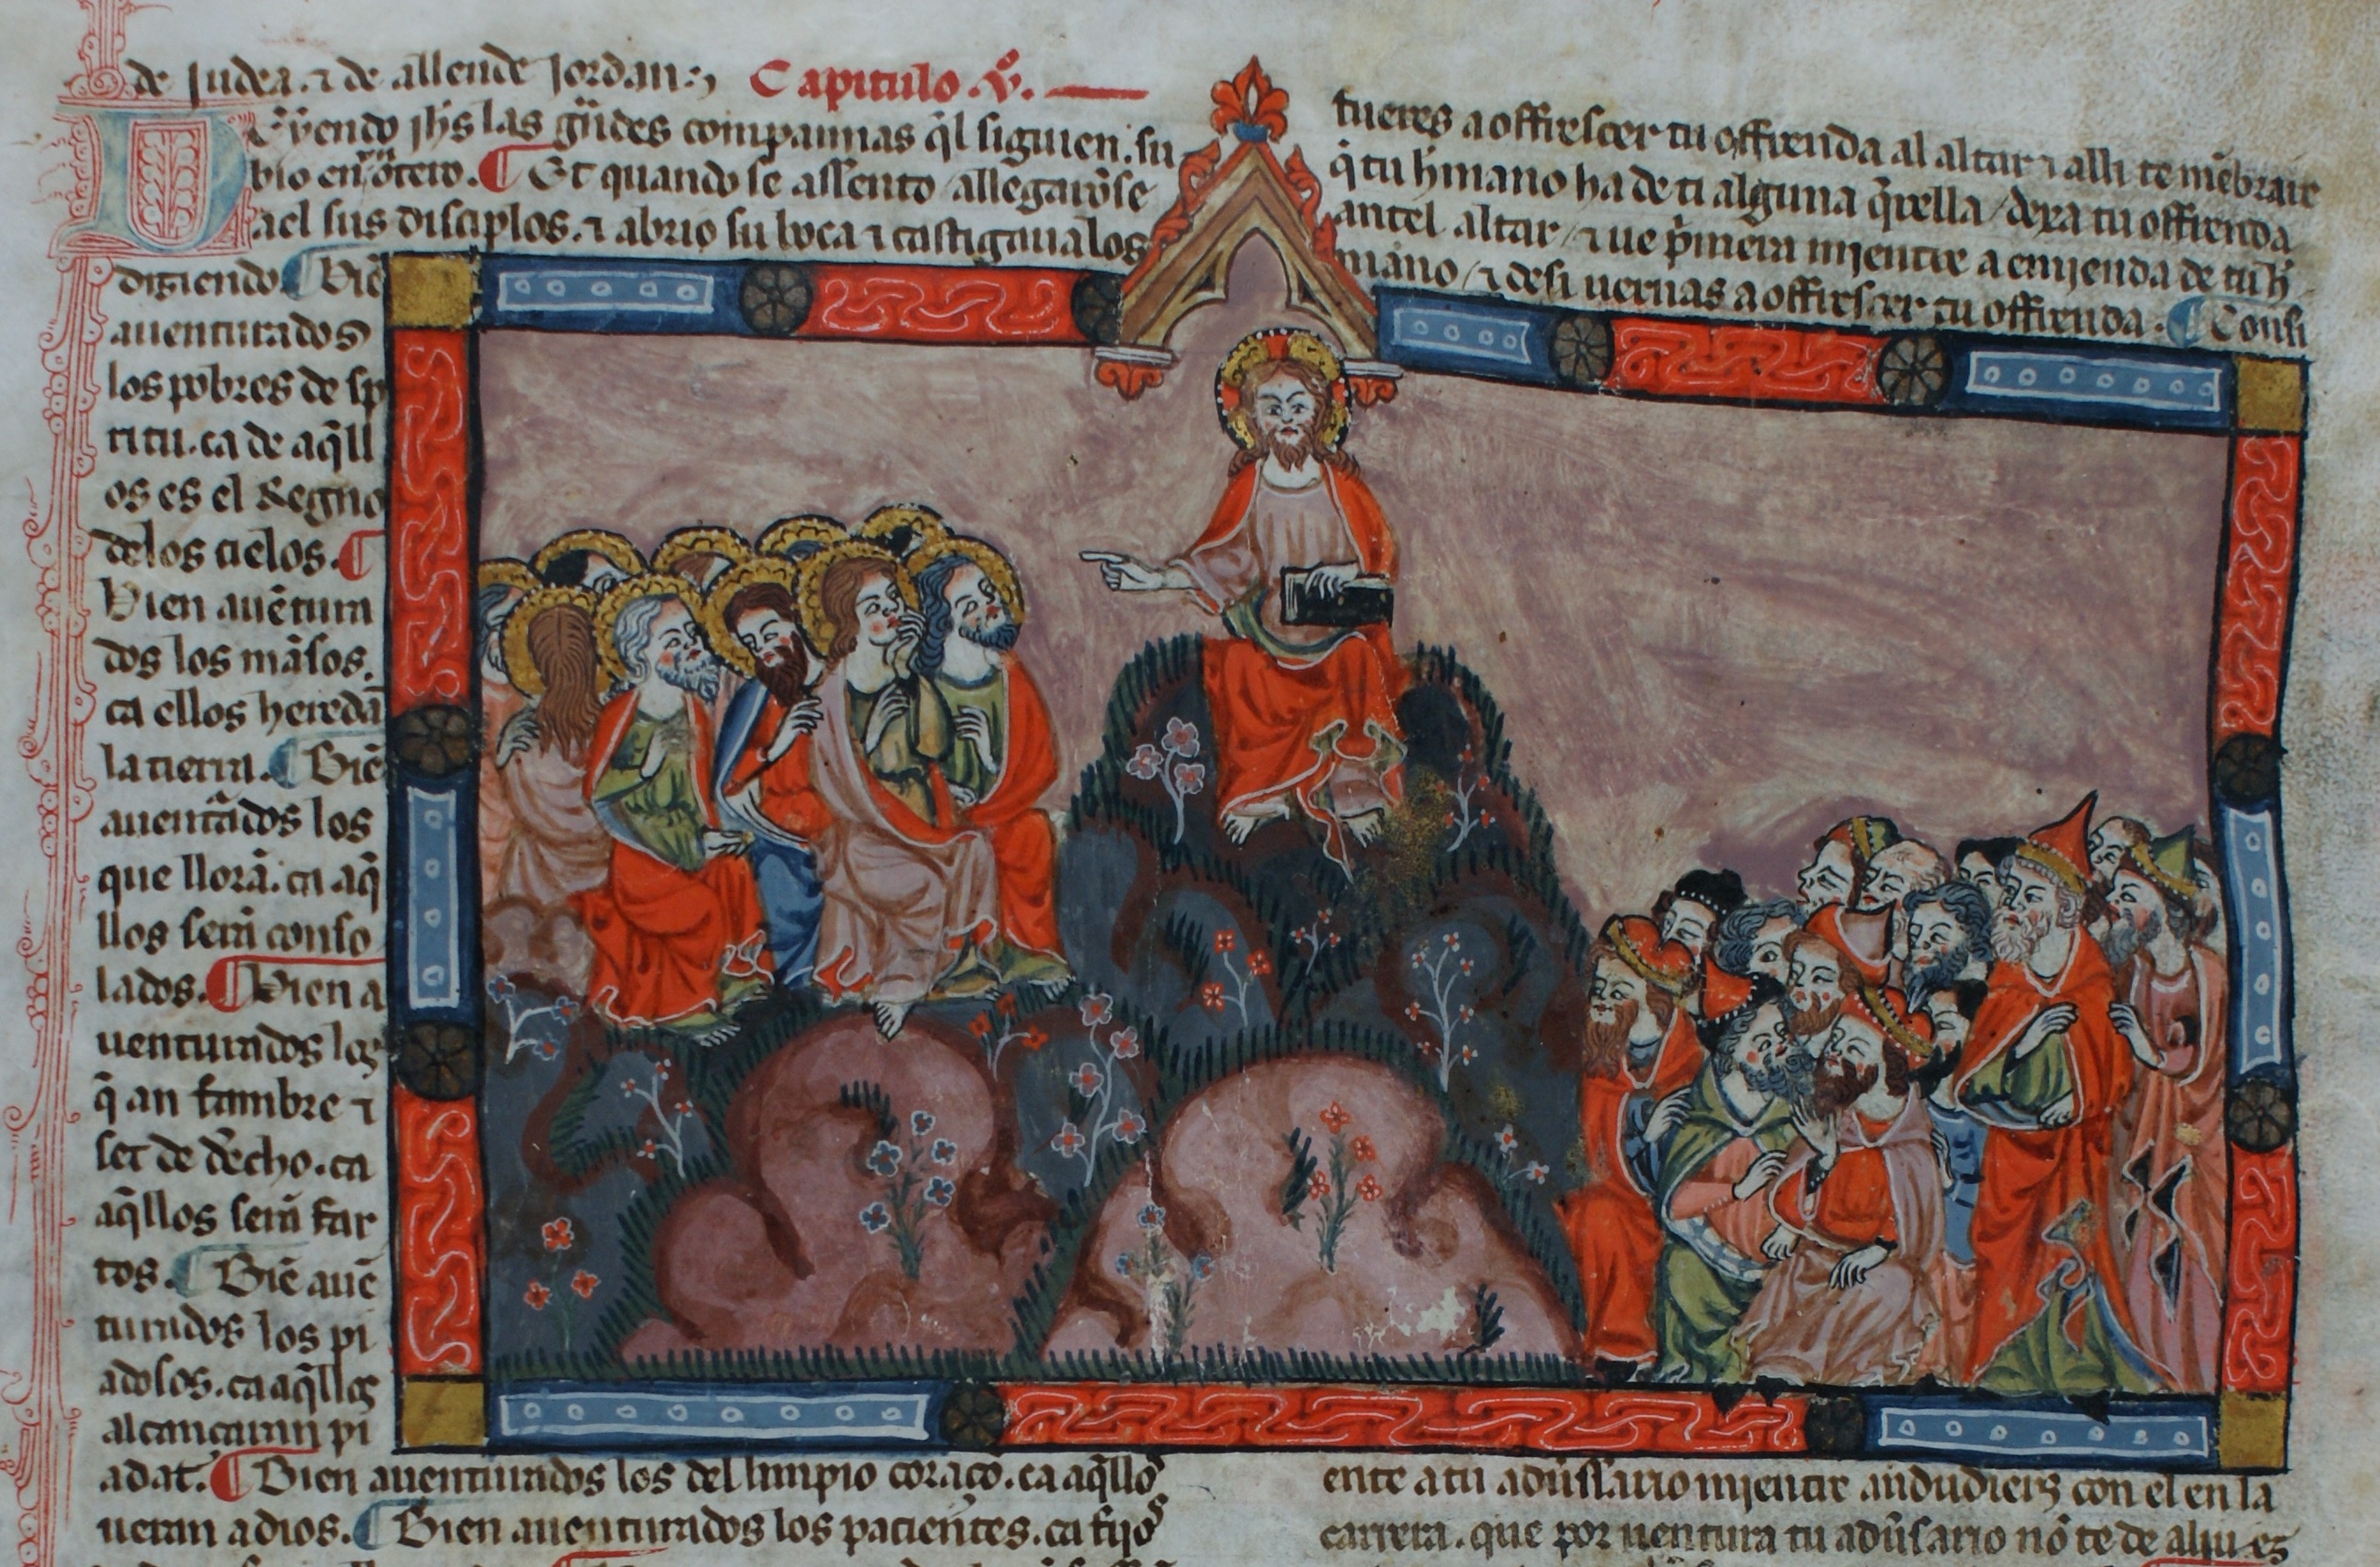 de Judea. ⁊ de allende Jordan:,
Capitulo .v̊.
D Eyendo ihs las gn̄des compannas q̄l siguien. su
bio en un otero. ¶ Et quando se assento / allegarōse
a el sus disciplos. ⁊ abrio su boca ⁊ castigaualos
diziendo ¶ Biē
auenturados
los pobres de sp
ritu. ca de aq̄ll
os es el Regno
delos cielos. ¶
Bien auētura
dos los māsos.
ca ellos heredā
la tierra. ¶ Biē
auenturados los
que llorā. ca aq̄
llos serā conso
lados. ¶ Bien a
uenturados los
q̄ an fambre ⁊
set de d̄echo. ca
aq̄llos serā far
tos. ¶ Biē auē
turados los pi
adosos. ca aq̄llos
alcançaran pi
adat. ¶ Bien auenturados los del limpio coraçō. ca aq̄llos
ueran a dios. ¶ Bien auenturados los pacientes. ca fijos
tueres a offrescer tu offrenda al altar ⁊ alli te mēbrare
q̄ tu h̄mano ha de ti alguna q̄rella / dexa tu offrenda
antel altar / ⁊ ue p̄mera mjentre a emjenda de tu h̄
mano / ⁊ desi uernas a offrescer tu offrenda. ¶ Consi
ente a tu adūssario mjentre andudierꝭ con el en la
carrera. que por uentura tu adūsario nō te de al iuez